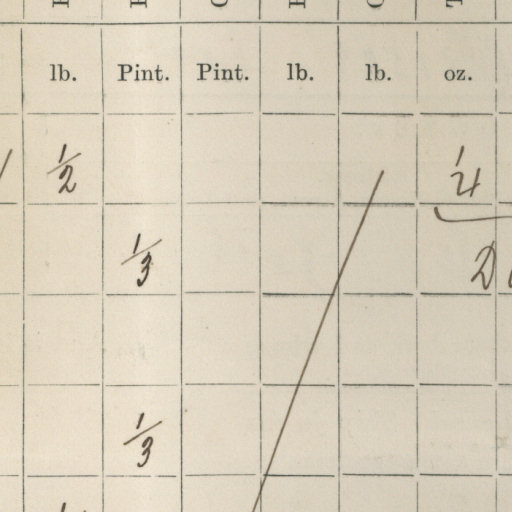 lb. Pint. Pint. lb. lb. oz.
1/2 1/4
1/3
1/3